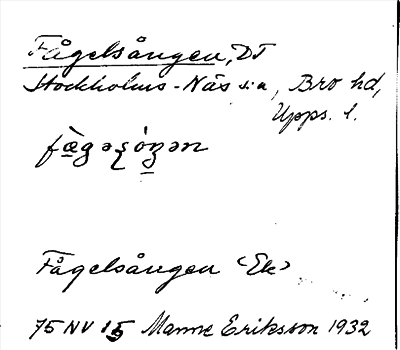 Fågelsången, DT
Stockholms-Näs sn, Bro hd,
Upps. l.
Fågelsången <Ek>
75 NV 15 Manne Eriksson 1932